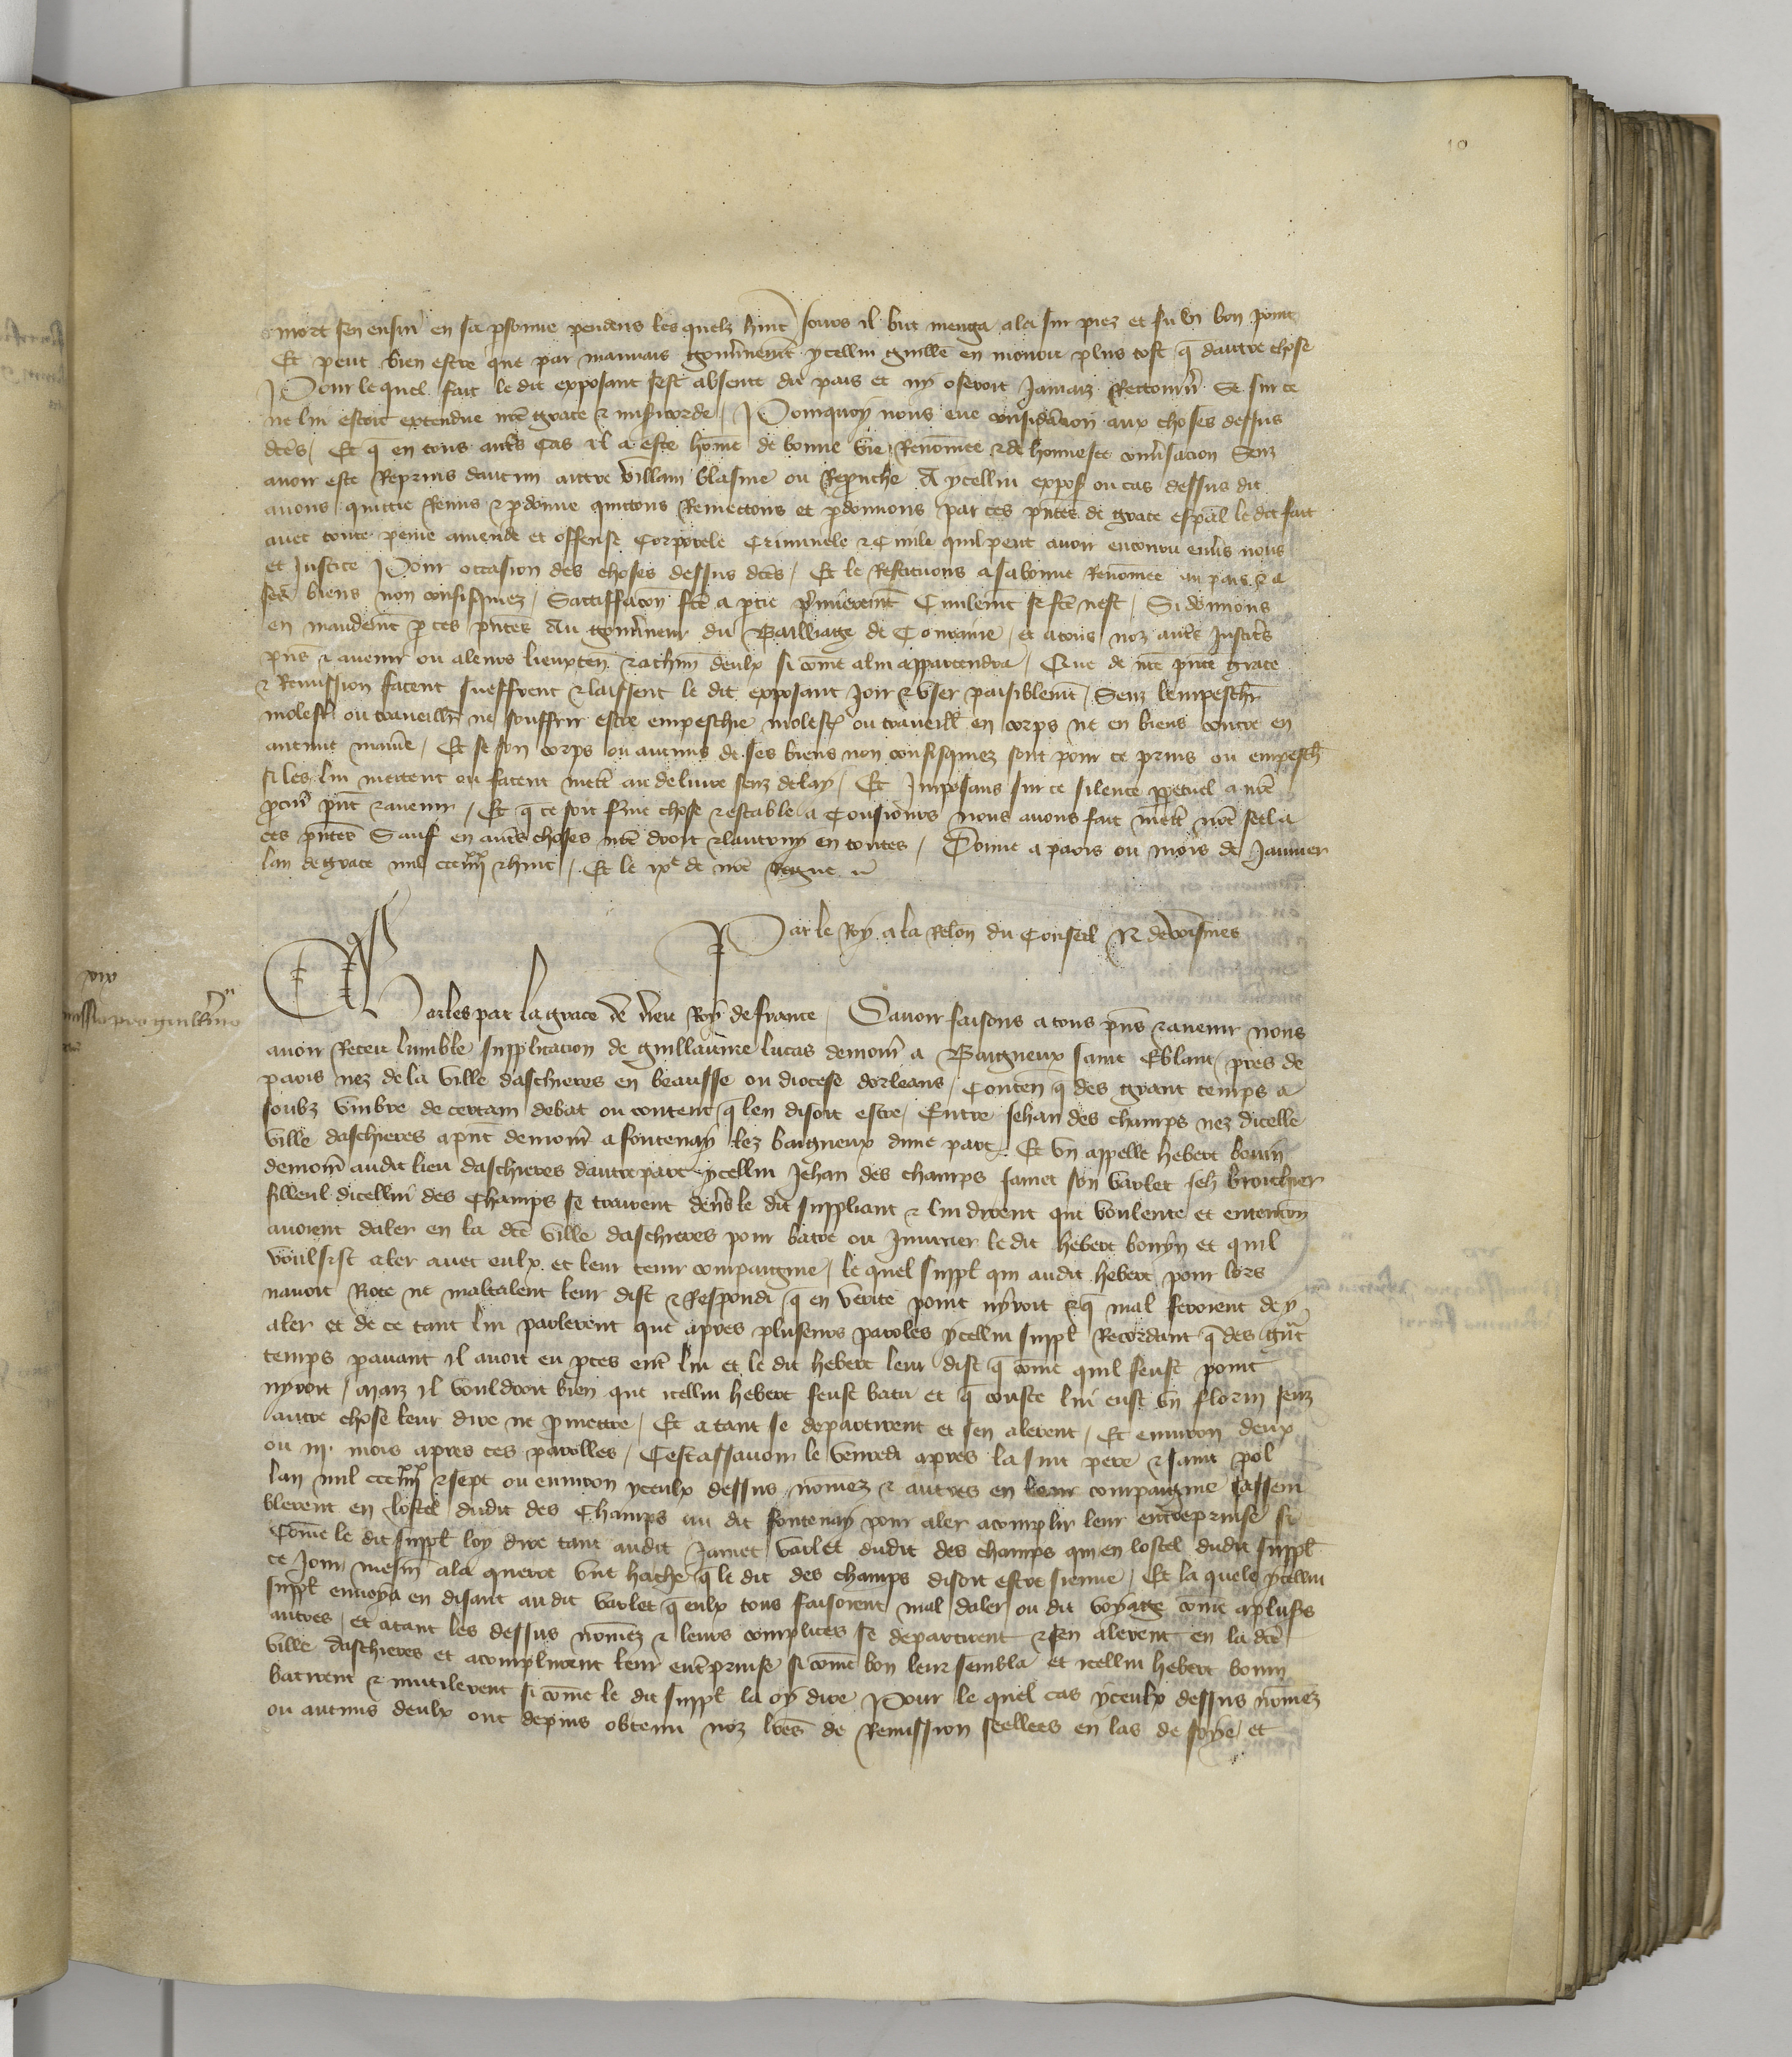 10
mort sen ensuī en sa psonne pendens les quelz huit jours il but menga ala sur piez et fu en bon point
Et peut bien estre que par mauvais gouvnemēt ycellui guillē en mourut plus tost q̄ dautre chose
Pour lequel fait le dit exposant sest absente du pais et ny oseroit jamaiz Retourn̄ Se sur ce
ne lui estoit extendue nrē grace & misicorde / Pourquoy nous eue consideracion aux choses dessus
dctēs / Et q̄ en tous autrēs cas il a este hōme de bonne vie Renōmee & de honneste convsacion Senz
avoir este Reprins daucun autre villain blasme ou Reprouche A ycellui expos ou cas dessus dit
avons quictie Remis & pdonne quictons Remectons et pdonnons par ces pn̄tes de grace espāl le dit fait
avec toute peine amende et offense Corporele Criminele & Civile quil peut avoir encouru envs nous
et Justice Pour occasion des choses dessus dctēs / Et le Restituons a sa bonne Renōmee au pais & a
ses biens non confisquez / Sattiffacōn fctē a ptie pmieremēt Civilemēt se fctē nest / Si donnons
en mandemēt p ces pn̄tes Au gouvneur du Bailliage de Touraine / et a tous noz autrēs Justicrs
pn̄s & avenir ou a leurs lieuxten̄ & a chūn deulx si cōme a lui appartendra / Que de nrē pn̄te grace
& Remission facent sueffrent & laissent le dit exposant Joir & user paisiblemēt / Senz lempeschr̄
molestr̄ ou traveillr̄ ne souffrir estre empeschie molest ou traveill en corps ne en biens contre en
aucune manīe / Et se son corps ou aucuns de ses biens non confisquez sont pour ce prins ou empesch
si les lui mectent ou facent mectr̄ au delivre senz delay / Et Imposans sur ce silence ppetuel a nrē
pcur̄ pn̄t & avenir / Et q̄ ce soit ferme chose & estable a tousjours nous avons fait mectr̄ nrē seel a
ces pn̄tes Sauf en autrēs choses nrē droit & lautruy en toutes / Donne a paris ou mois de Janvier
lan de grace mil ccc iiiixx & huit / Et le ixe de nrē Regne
Par le Roy a la Relōn du Conseil N de voisines
xix
missio pro guillmo
Charles par la grace de dieu Roy de france / Savoir faisons a tous pn̄s & avenir nous
avoir Receu lumble supplicacion de guillaume lucas demour̄ a Baigneux saint Eblant / pres de
paris nez de la ville daschieres en beausse ou diocese dorleans / Conten̄ q̄ des grant temps a
soubz umbre de certain debat ou content q̄ len disoit estre / Entre Jehan des champs nez dicelle
ville daschieres apn̄t demour̄ a fontenay lez baigneux dune part Et un appelle hebert bonin
demour̄ audit lieu daschieres dautre part ycellui Jehan des champs Jamet son varlet Jeh brouchier
filleul dicellui des Champs se trairent devs le dit suppliant & lui dirent que voulente et entencōn
avoient daler en la dctē ville daschieres pour batre ou Injurier le dit hebert bonyn et quil
voulsist aler avec eulx et leur tenir compaignie / le quel suppl qui audit hebert pour lors
navoit Riote ne maltalent leur dist & Respondi q̄ en verite point nyroit & q̄ mal feroient de y
aler et de ce tant lui parlerent que apres pluseurs paroles ycellui suppl Recordant q̄ des gūt
temps pavant il avoit eu pces entr̄ lui et le dit hebert leur dist q̄ cōment quil feust point
nyroit / maiz il vouldroit bien que icellui hebert feust batu et q̄ couste lui eust un florin senz
autre chose leur dire ne pmettre / Et atant se departirent et sen alerent / Et environ deux
ou iij mois apres ces parolles / Cestassavoir le venredi apres la saint pere & saint pol
lan mil ccc iiiixx & sept ou environ yceulx dessus nōmez & autres en leur compaignie sassem
blerent en lostel dudit des Champs au dit fontenay pour aler acomplir leur entreprinse si
Cōme le dit suppl loy dire tant audit Jamet varlet dudit des champs qui en lostel dudit suppl
ce Jour mesm̄ ala querre une hache q̄ le dit des champs disoit estre sienne / Et la quele ycellui
suppl envoya en disant au dit varlet q̄ eulx tous faisoient mal daler ou dit voyage cōme a plusrs
autres / et atant les dessus nōmez & leurs complices se departirent & sen alerent en la dctē
ville daschieres et acomplirent leur entrprinse si cōme bon leur sembla et icellui hebert bonin
batirent & mutilerent si cōme le dit suppl la oy dire Pour le quel cas yceulx dessus nōmez
ou aucuns deulx ont depuis obtenu noz lrēs de Remission seellees en las de soye / et